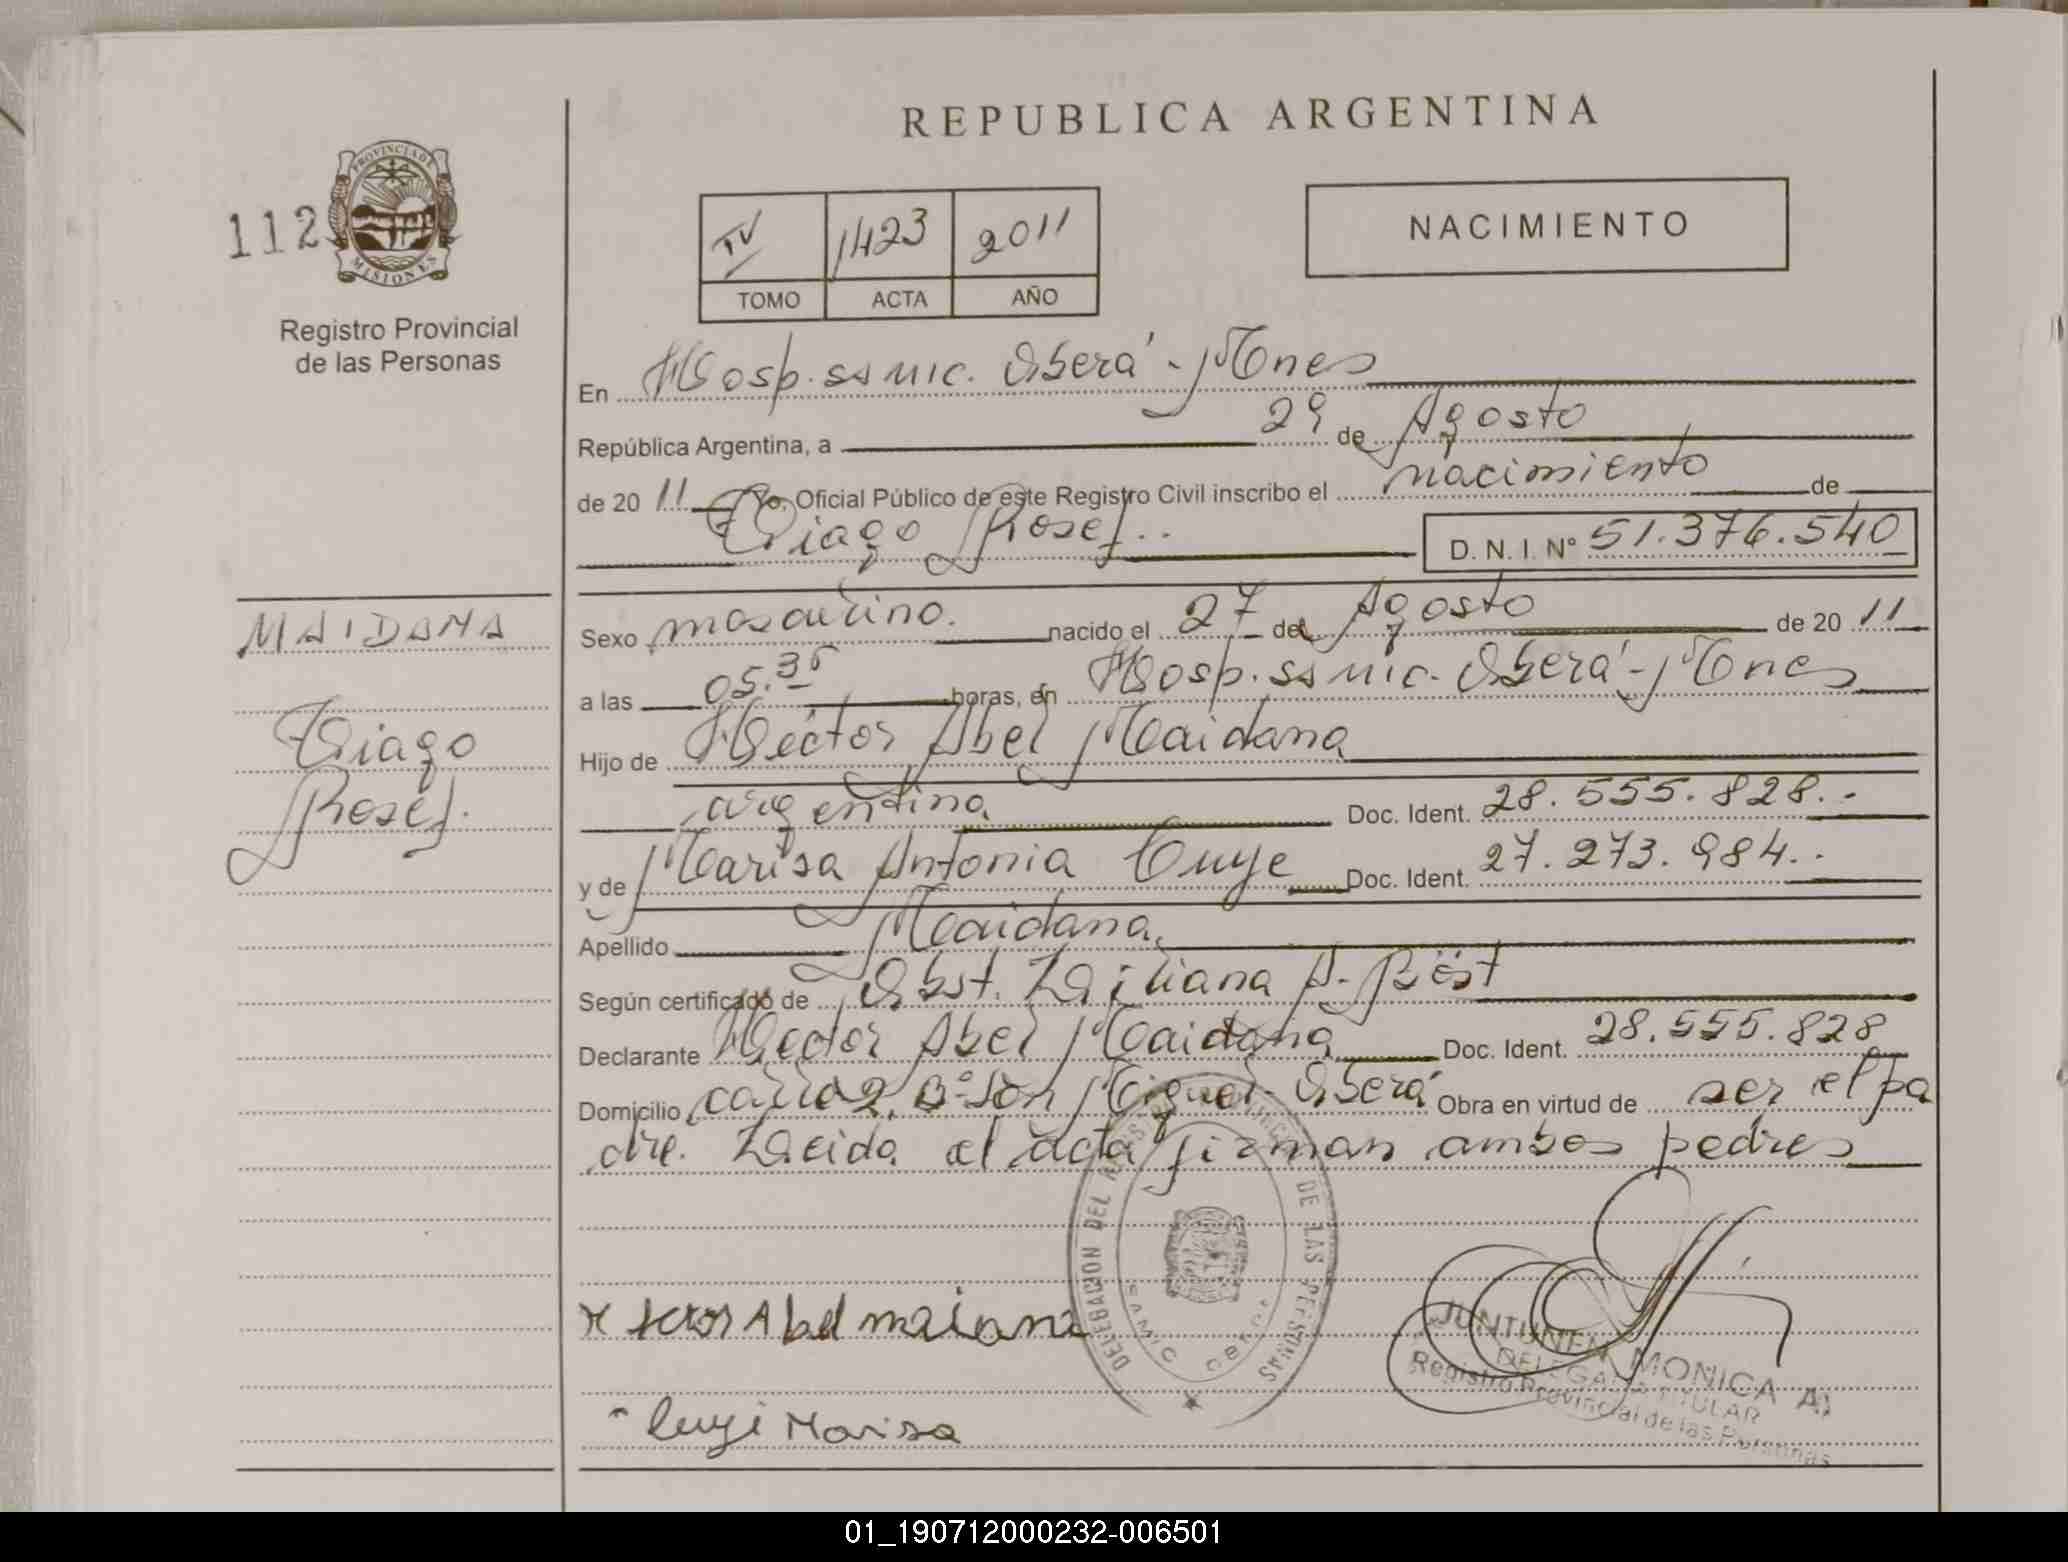 REPUBLICA ARGENTINA
112
PROVINCIA DE
MISIONES
Registro Provincial
de las Personas
IV 1423 2011
TOMO ACTA AÑO
NACIMIENTO
En Hosp. ssmic. Oberá - Mnes
República Argentina, a 29 de Agosto
de 20 11 Yo, Oficial Público de este Registro Civil inscribo el nacimiento de
Tiago José..
D. N. I. N° 51.376.540
MAIDANA
Tiago
José.
Sexo masculino. nacido el 27 de Agosto de 20 11
a las 05.35 horas, en Hosp. ssmic. Oberá - Mnes
Hijo de Héctor Abel Maidana
argentina Doc. Ident. 28.555.828..
y de Marisa Antonia Cuye Doc. Ident. 27.273.984..
Apellido Maidana
Según certificado de Obst. Liliana A.
Declarante Hector Abel Maidana Doc. Ident. 28.555.828
Domicilio B° San Miguel Oberá Obra en virtud de ser el pa
dre. Leida el acta firman ambos padres
DELEGACION DEL REGISTRO PROVINCIAL DE LAS PERSONAS
SAMIC OBERA
Hector Abel maiana
Cuye Marisa
JUNTUNEN MONICA A.
DELEGADA TITULAR
Registro Provincial de las Personas
01_190712000232-006501